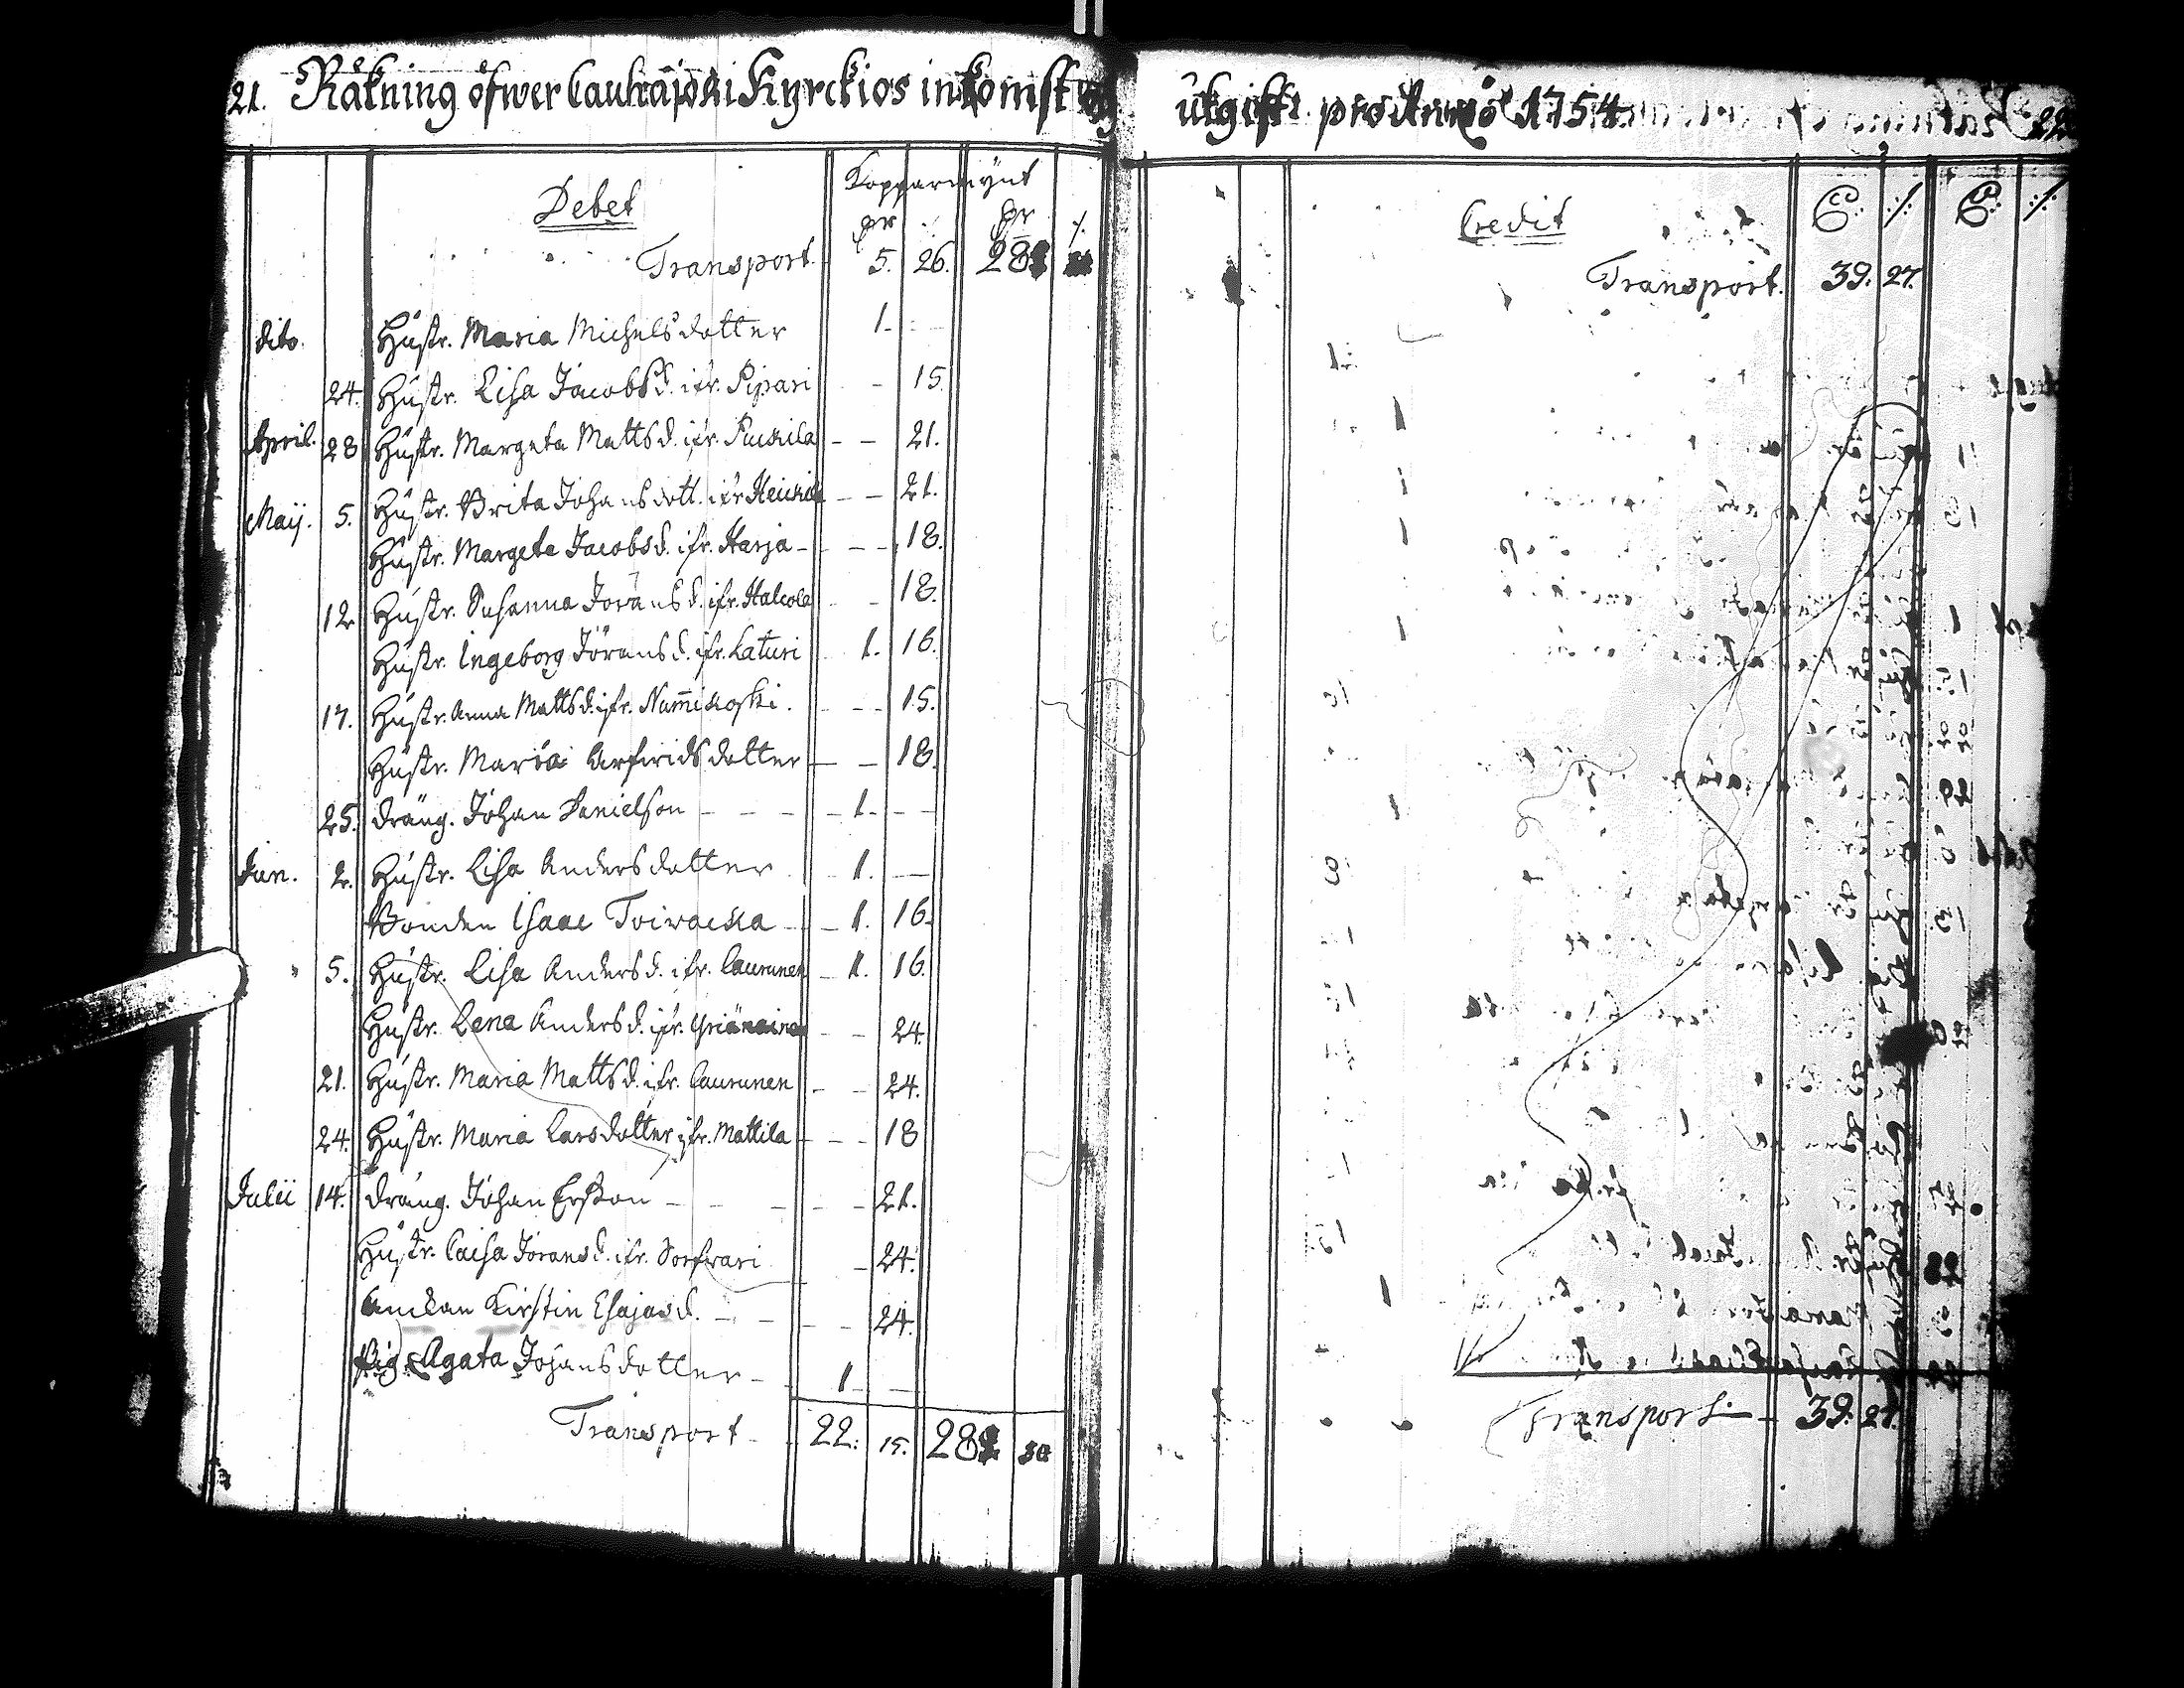 21. Räkning öfwer Cauhajoki Kyrckios inkomst och
Debet
Kopparmynt
Transport. 5. 26. 28
dito. Hustr. Maria Michelsdotter 1.
24. Hustr. Lisa Jacobsd. ifr. Pipari 15.
April. 28 Hustr. Margeta Mattsd. ifr. Puckila 21.
Maij. 5. Hustr. Brita Johansdott. ifr Heickilä 21.
Hustr. Margeta Jacobsd. ifr. Harja 18.
12 Hustr. Susanna Jöransd. ifr. Halcola 18.
Hustr. Ingeborg Jöransd. ifr. Laturi 1. 16.
17. Hustr. Anna Mattsd. ifr. Nummikoski. 15.
Hustr. Maria Arfwidsdotter 18.
25. dräng. Johan Danielson 1.
Jun. 2. Hustr. Lisa Andersdotter 1.
Bonden Isaac Toivacka 1. 16.
5. Hustr. Lisa Andersd. ifr. Caurunen 1. 16.
Hustr. Lena Andersd. ifr. 24.
21. Hustr. Maria Mattsd. ifr. Caurunen 24.
24. Hustr. Maria Larsdotter ifr. Mattila 18
Julii 14. dräng. Johan Erson 21.
Hustr. Caisa Jöransd. ifr. Sorfwari 24.
Änckan Kirstin Esajasd. 24.
Pig. Agata Johansdotter 1
Transport 22. 15. 28
utgift pro Anno 1754. 22
Credit
Transport. 39. 27.
Transport. 39. 27.